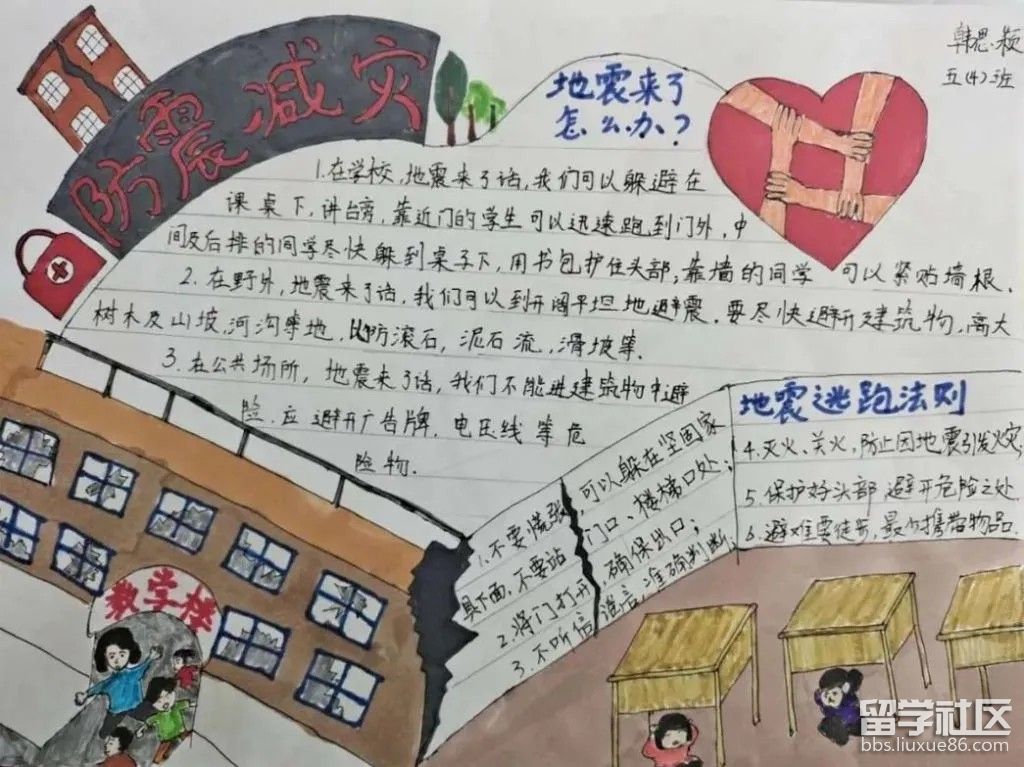 防震减灾
韩思颖
五(4)班
地震来了
怎么办?
1.在学校,地震来了话,我们可以躲避在
课桌下,讲台旁,靠近门的学生可以迅速跑到门外,中
间及后排的同学尽快躲到桌子下,用书包护住头部,靠墙的同学 可以紧贴墙根。
2.在野外,地震来了话,我们可以到开阔平坦地避震。要尽快避开建筑物,高大
树木及山坡,河沟等地,以防滚石,泥石流,滑坡等.
3.在公共场所,地震来了话,我们不能进建筑物中避
险.应避开广告牌.电压线等危
险物.
1.不要慌张 可以躲在坚固家
具下面,不要站 门口、楼梯口处;
2.将门打开,确保出口;
3.不听信谣言,准确判断;
地震逃跑法则
4.灭火、关火,防止因地震引发火灾;
5.保护好头部 避开危险之处
6.避难要徒步,最少携带物品
教学楼
留学社区
bbs.liuxue86.com